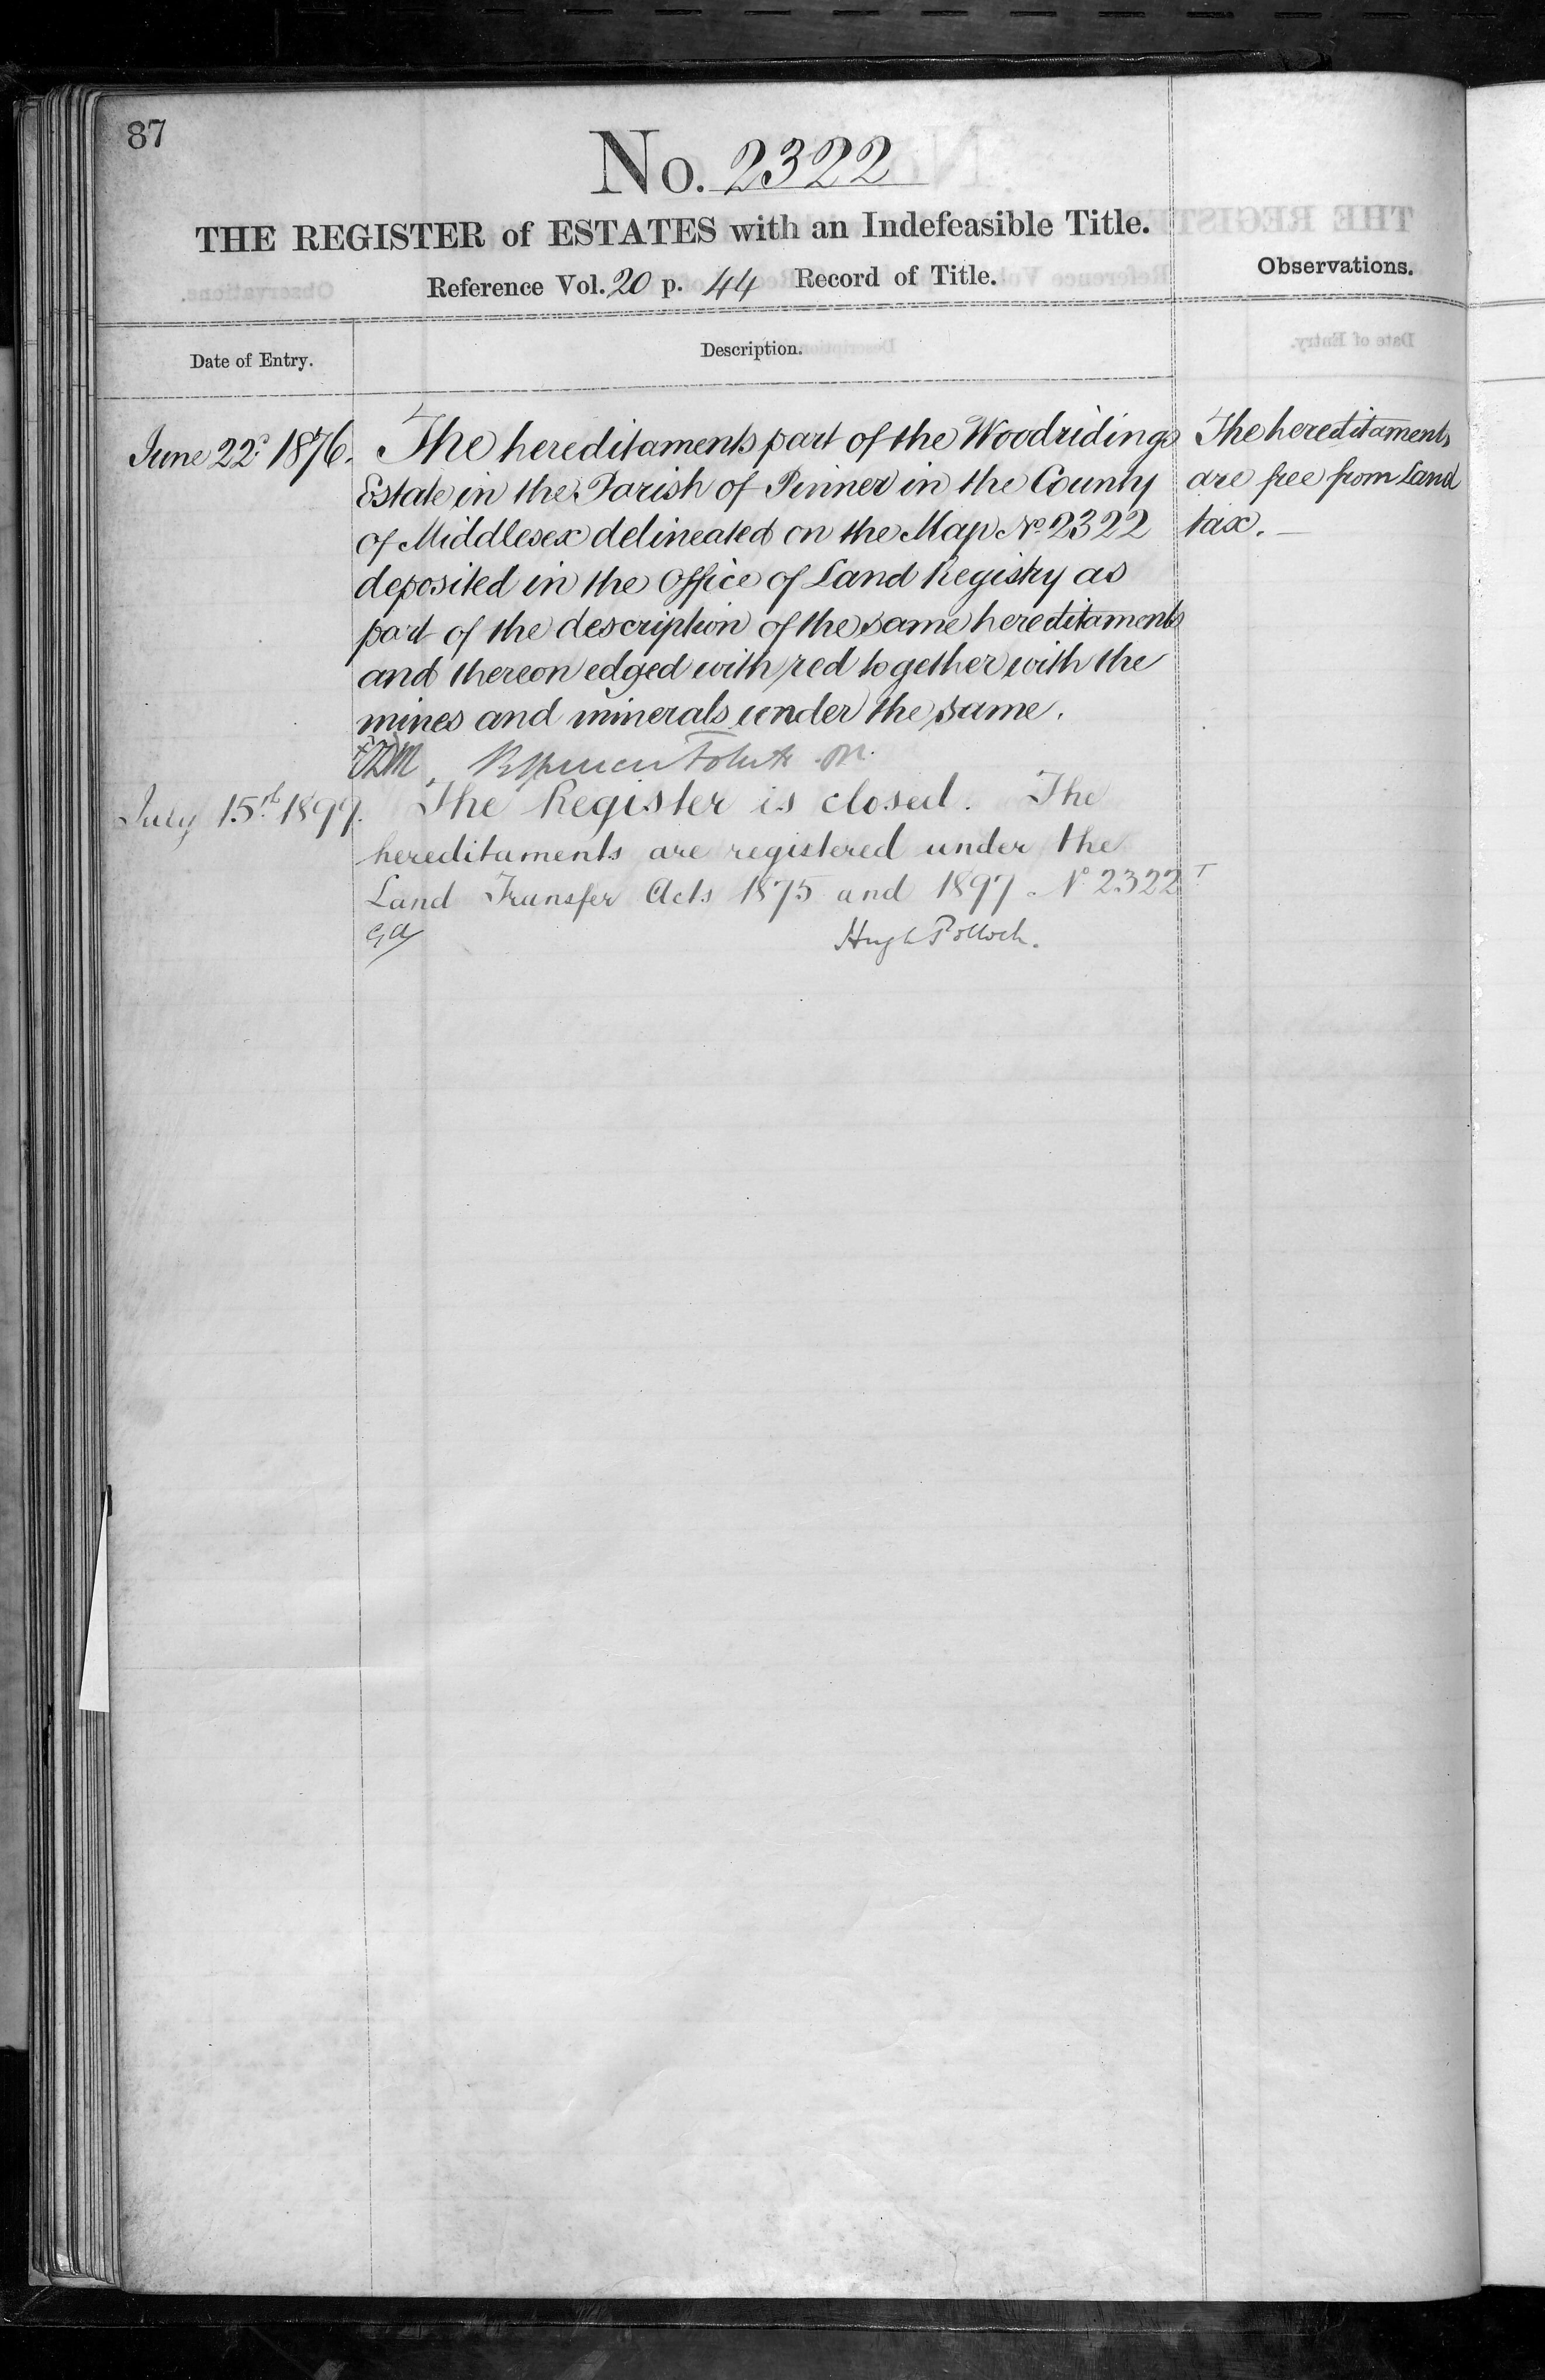 87
No. 2322
THE REGISTER of ESTATES with an Indefeasible Title.
Reference Vol. 20 p. 44 Record of Title.
Observations.
Date of Entry.
Description.
June 22d 1876.
The hereditaments part of the Woodridings
Estate in the Parish of Pinner in the County
of Middlesex delineated on the Map No 2322
deposited in the Office of Land Registry as
part of the description of the same hereditaments
and thereon edged with red together with the
mines and minerals under the same.
The hereditaments
are free from Land
tax. —
July 15th 1899.
The Register is closed. The
hereditaments are registered under the
Land Transfer Acts 1875 and 1897 - No 2322 T
Hugh Pollock.